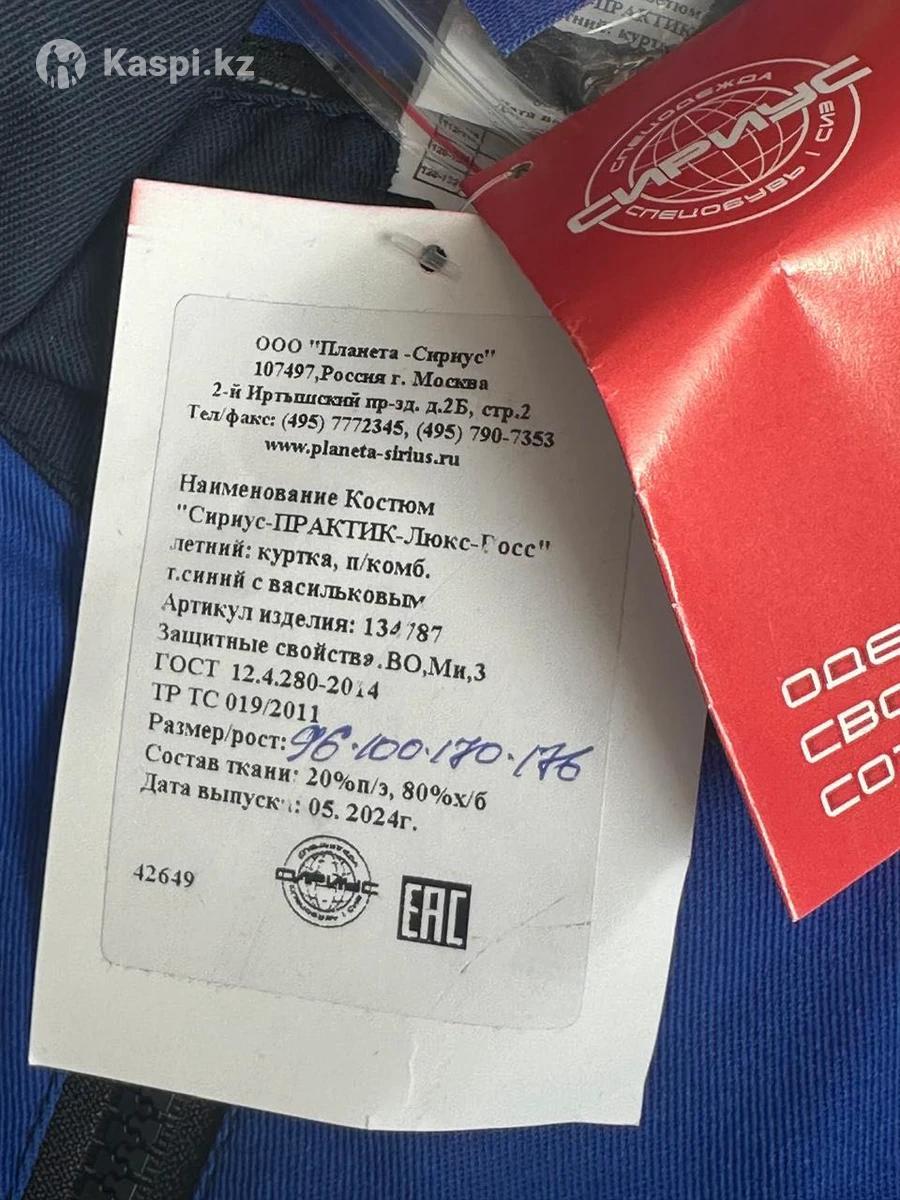 Kaspi.kz
СПЕЦОДЕЖДА
СИРИУС
СПЕЦОБУВЬ | СИЗ
ООО "Планета -Сириус"
107497,Россия г. Москва
2-й Иртышский пр-зд. д.2Б, стр.2
Тел/факс: (495) 7772345, (495) 790-7353
www.planeta-sirius.ru
Наименование Костюм
"Сириус-ПРАКТИК-Люкс-Росс"
летний: куртка, п/комб.
т.синий с васильковым
Артикул изделия: 134787
Защитные свойства:ВО,Ми,З
ГОСТ 12.4.280-2014
ТР ТС 019/2011
Размер/рост: 96-100-170-176
Состав ткани: 20%п/э, 80%х/б
Дата выпуска: 05. 2024г.
42649
СПЕЦОДЕЖДА
СИРИУС
СПЕЦОБУВЬ | СИЗ
EAC